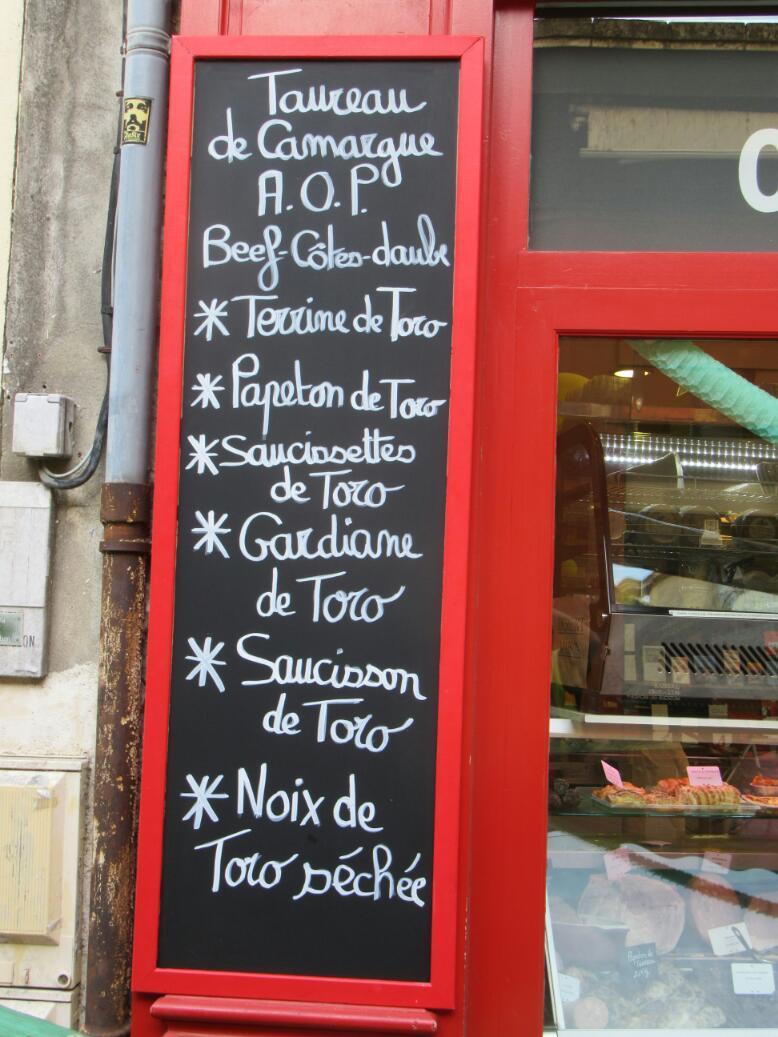 Taureau
de Camargue
A.O.P.
Beef-Côtes-daube
* Terrine de Toro
* Papeton de Toro
* Saucissettes
de Toro
* Gardiane
de Toro
* Saucisson
de Toro
* Noix de
Toro séchée